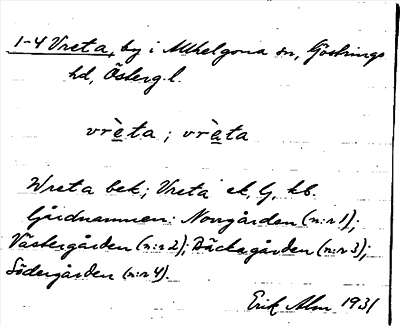 1-4 Vreta, by i Allhelgona sn, Göstrings
hd, Österg. l.
vrèta ; vrèta
Wreta bek; Vreta ek, G, kb.
Gårdnamnen: Norrgården (n:r 1);
Västergården (n:r 2); Bäckagården (n:r 3);
Södergården (n:r 4).
Erik Alm 1931